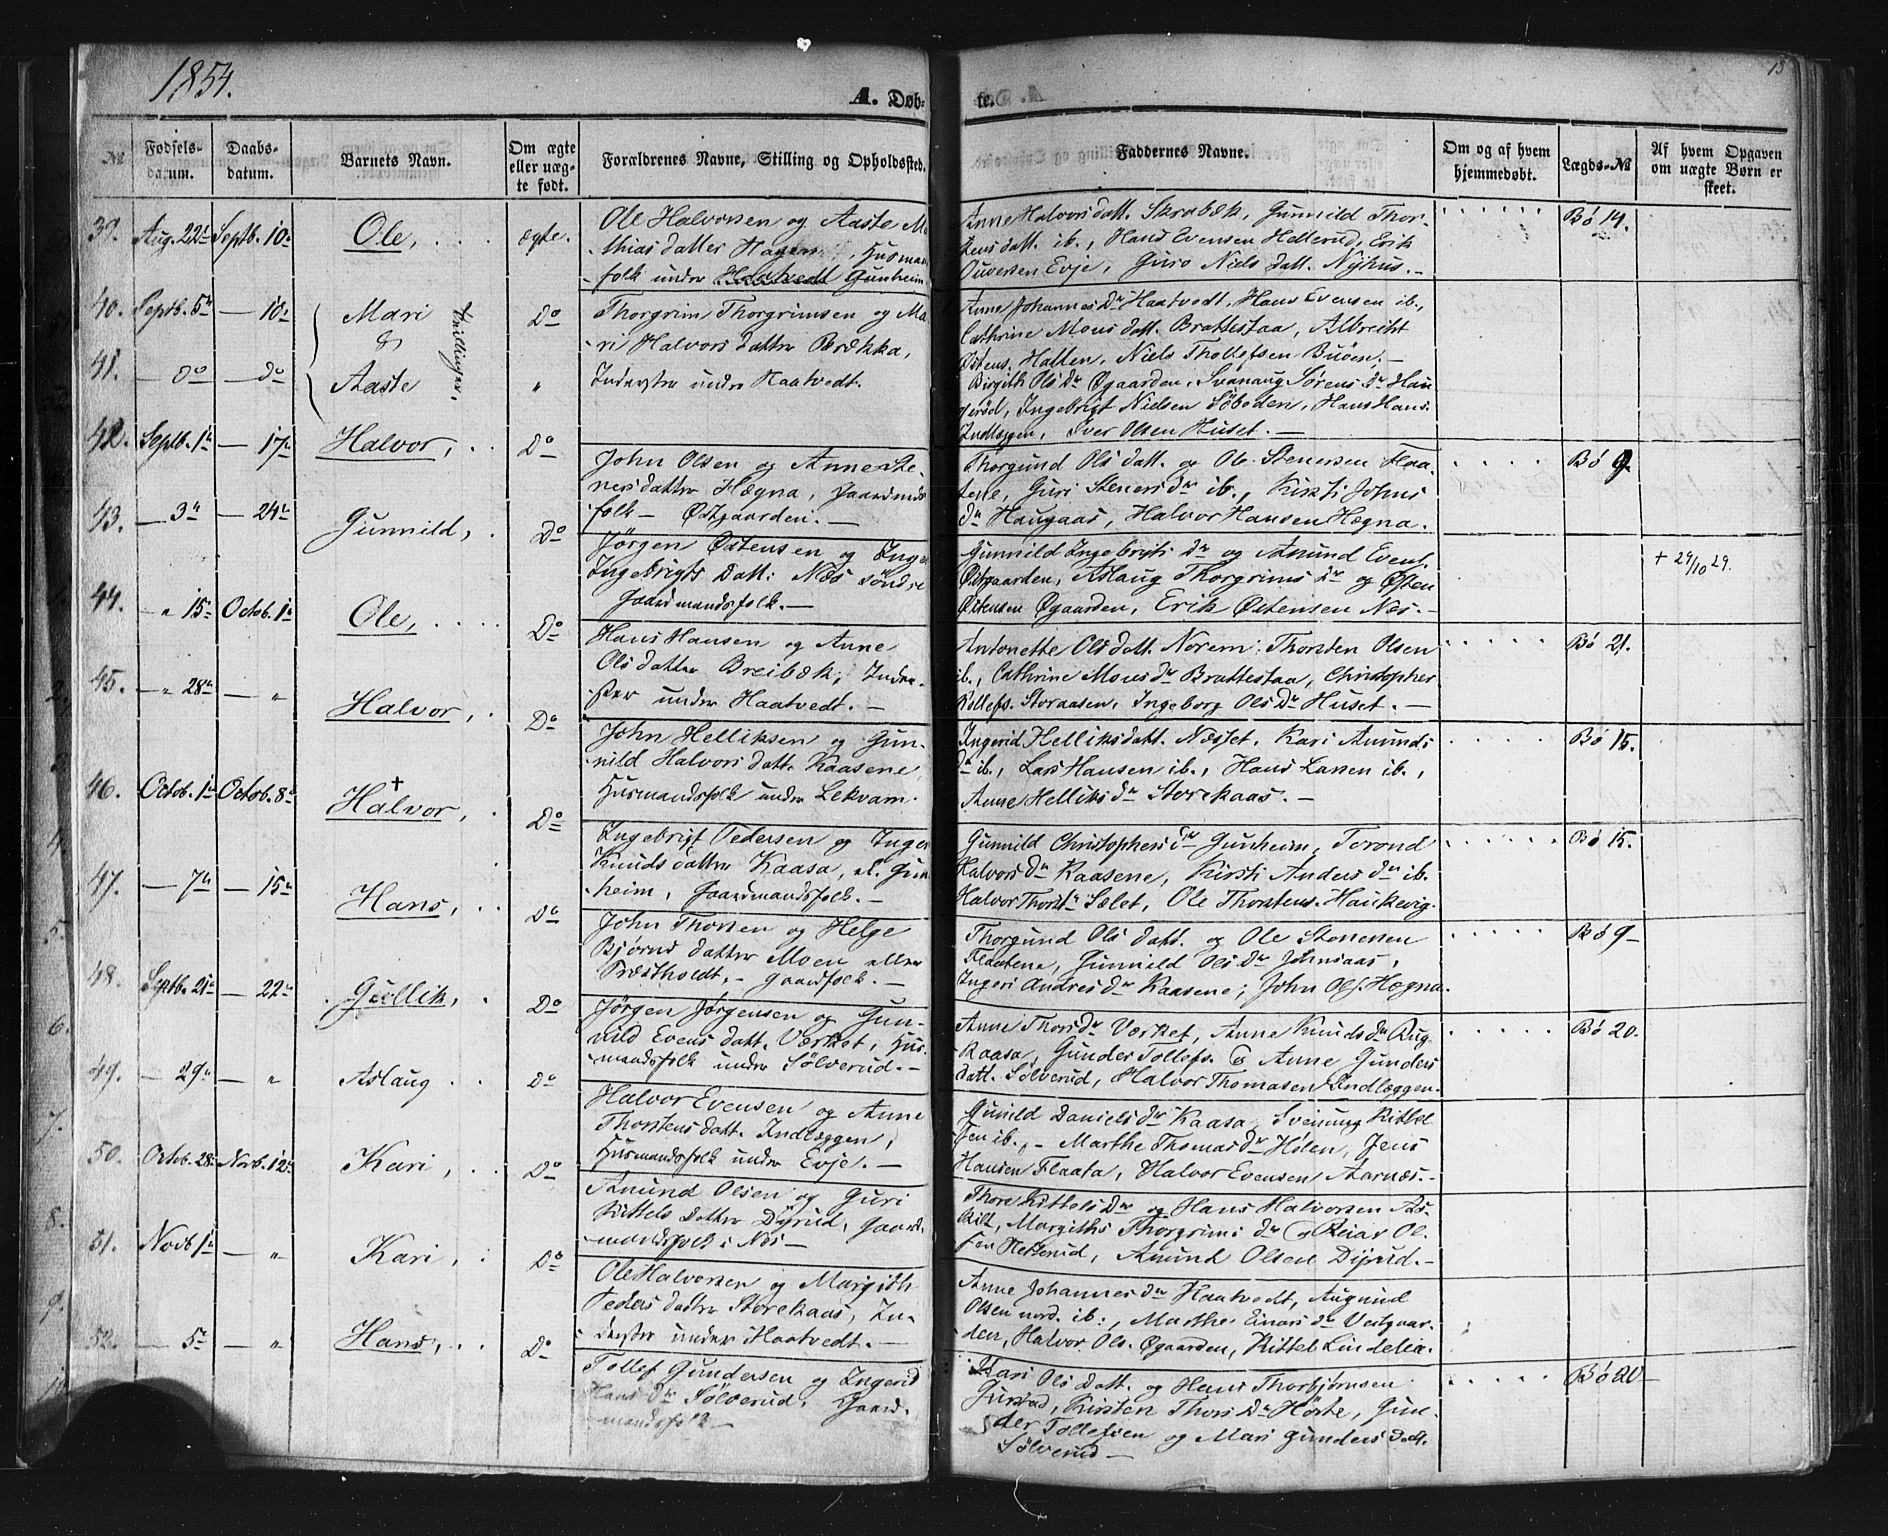 1854.
A. Døb-
te.
13
№
Fødsels-
datum.
Daabs-
datum.
Barnets Navn.
Om ægte
eller uæg-
te født.
Forældrenes Navne, Stilling og Opholdssted.
Faddernes Navne.
Om og af hvem
hjemmedøbt.
Lægds-№
Af hvem Opgaven
om uægte Børn er
skeet.
39. Aug. 22 Septb. 10 Ole, ægte.
Ole Halvorsen og Aaste Ma-
thias datter Hagen, Husmand-
folk under Haatvedt Gunheim
Anne Halvorsdatt. Skrabæk, Gunnild Thor-
stensdatt. ib., Hans Evensen Hellerud, Erik
Ouversen Evje, Guro Niels datt. Nyhus.
Bø 14.
40. Septb. 5 — 10 Mari
&
41. — do — do Aaste
Tvillinger.
Do
"
Thorgrim Thorgrimsen og Ma-
ri Halvors datter Brækka,
Inderster under Haatvedt.
Anne Johannes Dr Haatvedt, Hans Evensen ib.,
Cathrine Mons datt. Brattestaa, Albrecht
Østens. Halten, Niels Thollefsen Buøen.
Birgith Ols Dr Øgaarden, Svanaug Sørens dr Hau-
gerød, Ingebrigt Nielsen Søboden, Hans Hans.
Indlæggen, Iver Olsen Huset.
42. Septb. 1 — 17 Halvor, Do
John Olsen og Anne Ste-
nersdatter Hægna, Gaardmands-
folk — Østgaarden.
Thorgund Ols datt. og Ole Stenersen Flaa-
tene, Guri Steners dr ib., Kirsti Johns
dr Haugaas, Halvor Hansen Hægna.
Bø 9.
43. — 3 — 24 Gunnild, Do
Jørgen Østensen og Inger
Ingebrigts Datt: Næs Søndre
Gaardmandsfolk.
Gunnild Ingebrigts dr og Amund Evens.
Østgaarden, Aslaug Thorgrims dr og Østen
Østensen Øgaarden, Erik Østensen Næs.
+ 29/10 29.
44. — " 15 Octob. 1 Ole, Do
Hans Hansen og Anne
Ols datter Breibæk, Inder-
ster under Haatvedt.
Antonette Ols datt. Norem, Thorsten Olsen
ib., Cathrine Mons dr Brattestaa, Christopher
Tollefs. Storaasen, Ingeborg Ols Dr Huset.
Bø 21.
45. — " 28 — " Halvor, Do
John Helliksen og Gun-
nild Halvors datt. Kaasene,
Husmandsfolk under Lekvam.
Ingerid Helliksdatt. Næsset, Kari Amunds
dr ib., Lars Hansen ib., Hans Larsen ib.,
Anne Helliks dr Storekaas.
Bø 15.
46. Octob. 1 Octob. 8 + Halvor, Do
Ingebrigt Pedersen og Inger
Knuds datter Kaasa, el. Gun-
heim, Gaardmandsfolk.
Gunnild Christophers dr Gunheim, Torond
Halvors dr Kaasene, Kirsti Anders dr ib.
Halvor Thors. Sælet, Ole Thorstens. Haukevig.
Bø 15.
47. — 7 — 15 Hans, Do
John Thorsen og Helge
Bjørns datter Moen eller
Præstholdt, gaardfolk.
Thorgund Ols datt. og Ole Stenersen
Flaatene, Gunnild Ols dr Johnsaas,
Ingeri Andres dr Kaasene, John Ols. Hægna.
Bø 9
48. Septb. 21 — 22 Gullik, Do
Jørgen Jørgensen og Gun-
nild Evens datt. Værket, Hus-
mandsfolk under Sølverud.
Anne Thors dr Værket, Anne Knuds dr Rug-
kaasa, Gunder Tollefs. & Anne Gunders
datt. Sølverud, Halvor Thomasen Indlæggen.
Bø 20.
49. — 29 — " Aslaug Do
Halvor Evensen og Anne
Thorstens datt. Indlæggen,
Husmandsfolk under Evje.
Gunild Daniels dr Kaasa, Sveinung Kittel-
sen ib., Marthe Thomas dr Holen, Jens
Hansen Flaata, Halvor Evensen Aarnæs.
50. Octob. 28 Novb. 12 Kari, Do
Amund Olsen og Guri
Kittels datter Dyrud, Gaard-
mandsfolk i Næs
Thore Kittels Dr og Hans Halvorsen As-
kilt, Margithe Thorgrims dr & Reiar Ol-
sen Hellerud, Amund Olsen Dyrud.
51. Novb 1 — " Kari, Do
Ole Halvorsen og Margith
Peders datter Storekaas, In-
derster under Haatvedt.
Anne Johannes dr Haatvedt, Augund
Olsen nord. ib:, Marthe Einars dr Vestgaar-
den, Halvor Ols. Øgaarden, Kittel Lindelia.
52. — 5 — " Hans, Do
Tollef Gundersen og Ingerid
Hans dr Sølverud, Gaard-
mandsfolk
Mari Ols Datt. og Hans Thorbjørnsen
Gurstad, Kirsten Thors Dr Hørte, Gun-
der Tollefsen og Mari Gunders datt.
Sølverud
Bø 20